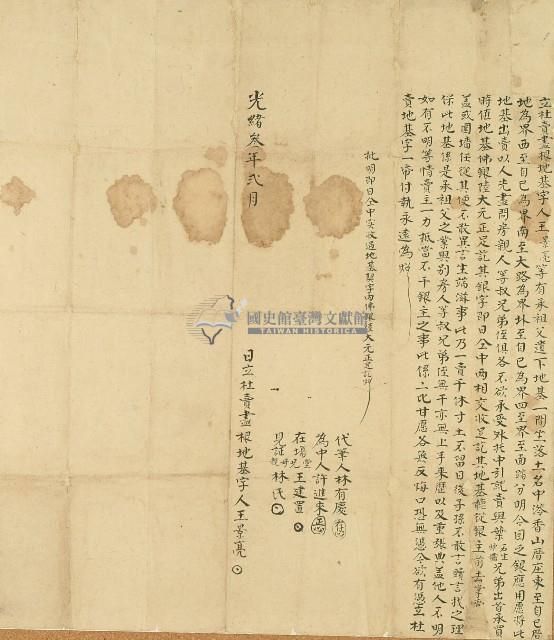 立杜賣盡根地基字人王景亮等有承祖父遺下地基一間坐落土名中洽香山厝座東至自已厝
地為界西至自已為界南至大路為界北至自已為界四至界至面踏分明今因乏銀應用愿將此
地基出賣以人先盡問房親人等叔兄弟侄俱各不欲承受外托中引就賣與葉 兄弟出首承買
時值地基佛銀陸大元正足訖其銀字即日仝中兩相交收足訖其地基聽從銀主前去掌管
蓋或圍墻任從其便不敢異言生端滋事此乃一賣千休寸土不留日後子孫不敢言贖言找之理
保此地基係是承祖父之業與別房人等叔兄弟侄無干亦無上手來歷以及重張典盖他人不明
如有不明等情賣主一力抵當不干銀主之事此係二比甘愿各無反悔口恐無憑今欲有憑立杜
賣地基字一帋付執永遠為炤
批明即日仝中實收過地基契字內佛銀陸大元正足訖炤
代筆人林有慶
為中人許進來
在場堂兄王建置
見証母親林氏
光緒叁年弍月 日立杜賣盡根地基字人王景亮
國史館臺灣文獻館
TAIWAN HISTORICA